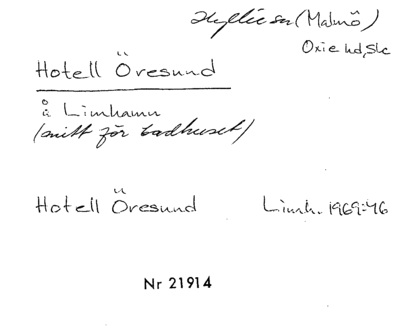 Hyllie sn (Malmö)
Oxie hd, Sk
Hotell Öresund
å Limhamn
(mitt för badhuset)
Hotell Öresund Limh. 1969:46
Nr 21914